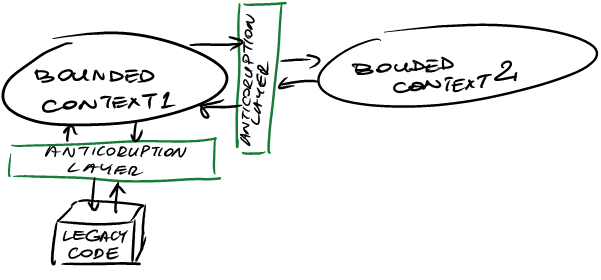 BOUNDED
CONTEXT1
ANTICORUPTION
LAYER
BOUDED
CONTEXT2
ANTICORUPTION
LAYER
LEGACY
CODE